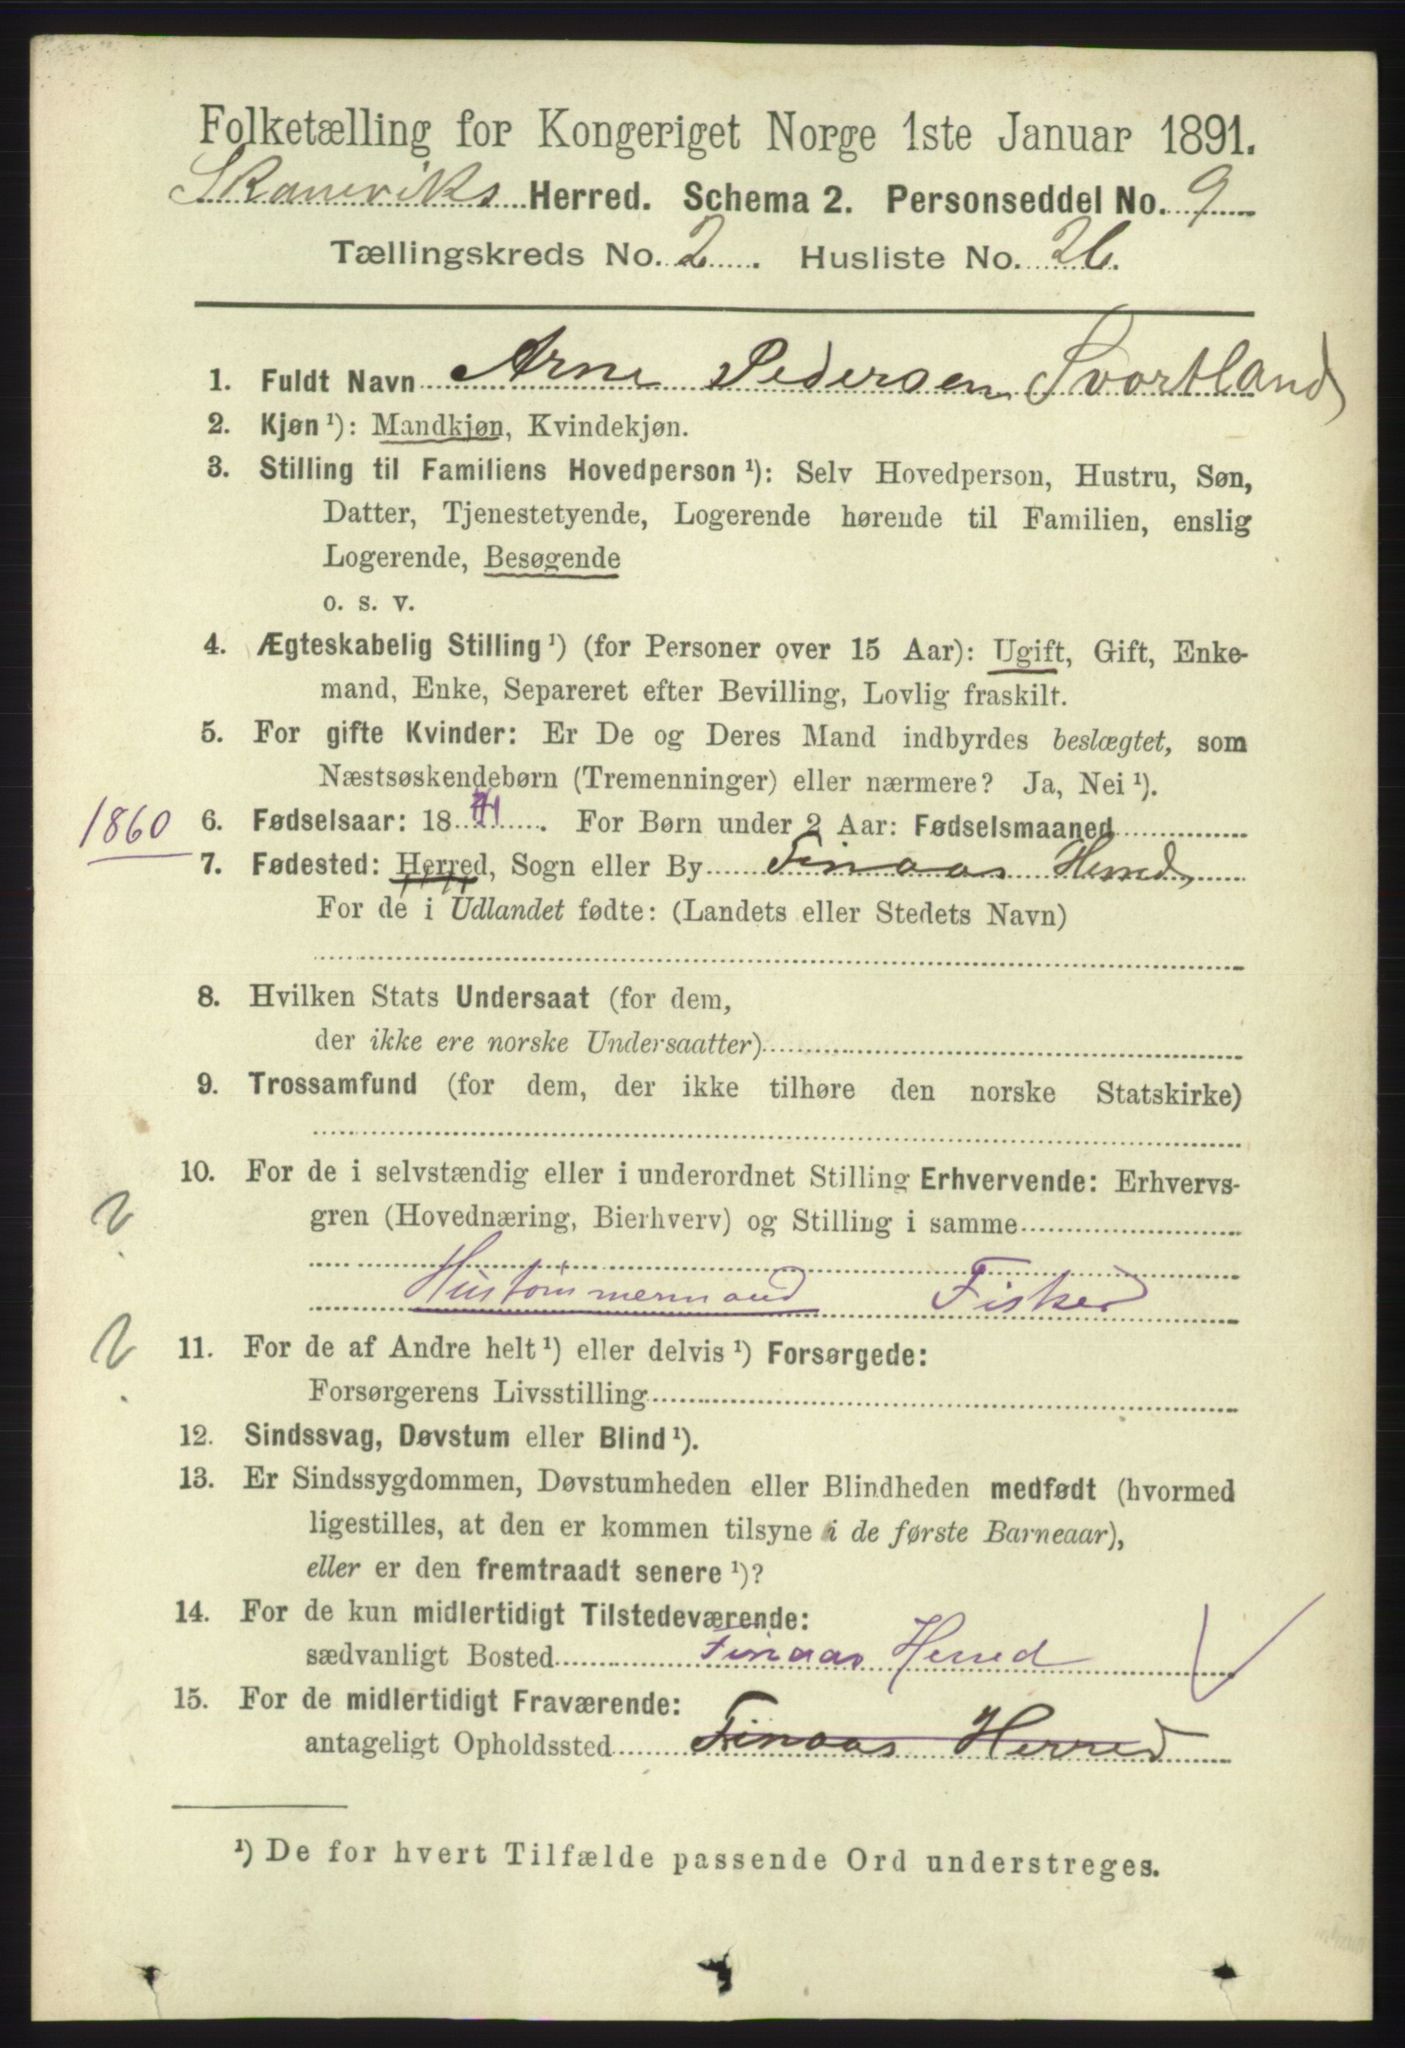 Folketælling for Kongeriget Norge 1ste Januar 1891.
Skaneviks Herred. Schema 2. Personseddel No. 9
Tællingskreds No. 2. Husliste No. 26.
1. Fuldt Navn Arne Pedersen Svortland
2. Kjøn ¹): Mandkjøn, Kvindekjøn.
3. Stilling til Familiens Hovedperson ¹): Selv Hovedperson, Hustru, Søn,
Datter, Tjenestetyende, Logerende hørende til Familien, enslig
Logerende, Besøgende
o. s. v.
4. Ægteskabelig Stilling ¹) (for Personer over 15 Aar): Ugift, Gift, Enke-
mand, Enke, Separeret efter Bevilling, Lovlig fraskilt.
5. For gifte Kvinder: Er De og Deres Mand indbyrdes beslægtet, som
Næstsøskendebørn (Tremenninger) eller nærmere? Ja, Nei ¹).
1860 6. Fødselsaar: 18 . For Børn under 2 Aar: Fødselsmaaned
7. Fødested: Herred, Sogn eller By Finaas Herred,
For de i Udlandet fødte: (Landets eller Stedets Navn)
8. Hvilken Stats Undersaat (for dem,
der ikke ere norske Undersaatter)
9. Trossamfund (for dem, der ikke tilhøre den norske Statskirke)
10. For de i selvstændig eller i underordnet Stilling Erhvervende: Erhvervs-
gren (Hovednæring, Bierhverv) og Stilling i samme
?
Hustømmermand Fisker
? 11. For de af Andre helt ¹) eller delvis ¹) Forsørgede:
Forsørgerens Livsstilling
12. Sindssvag, Døvstum eller Blind ¹).
13. Er Sindssygdommen, Døvstumheden eller Blindheden medfødt (hvormed
ligestilles, at den er kommen tilsyne i de første Barneaar),
eller er den fremtraadt senere ¹)?
14. For de kun midlertidigt Tilstedeværende:
sædvanligt Bosted Finaas Herred
15. For de midlertidigt Fraværende:
antageligt Opholdssted Finaas Herred
¹) De for hvert Tilfælde passende Ord understreges.